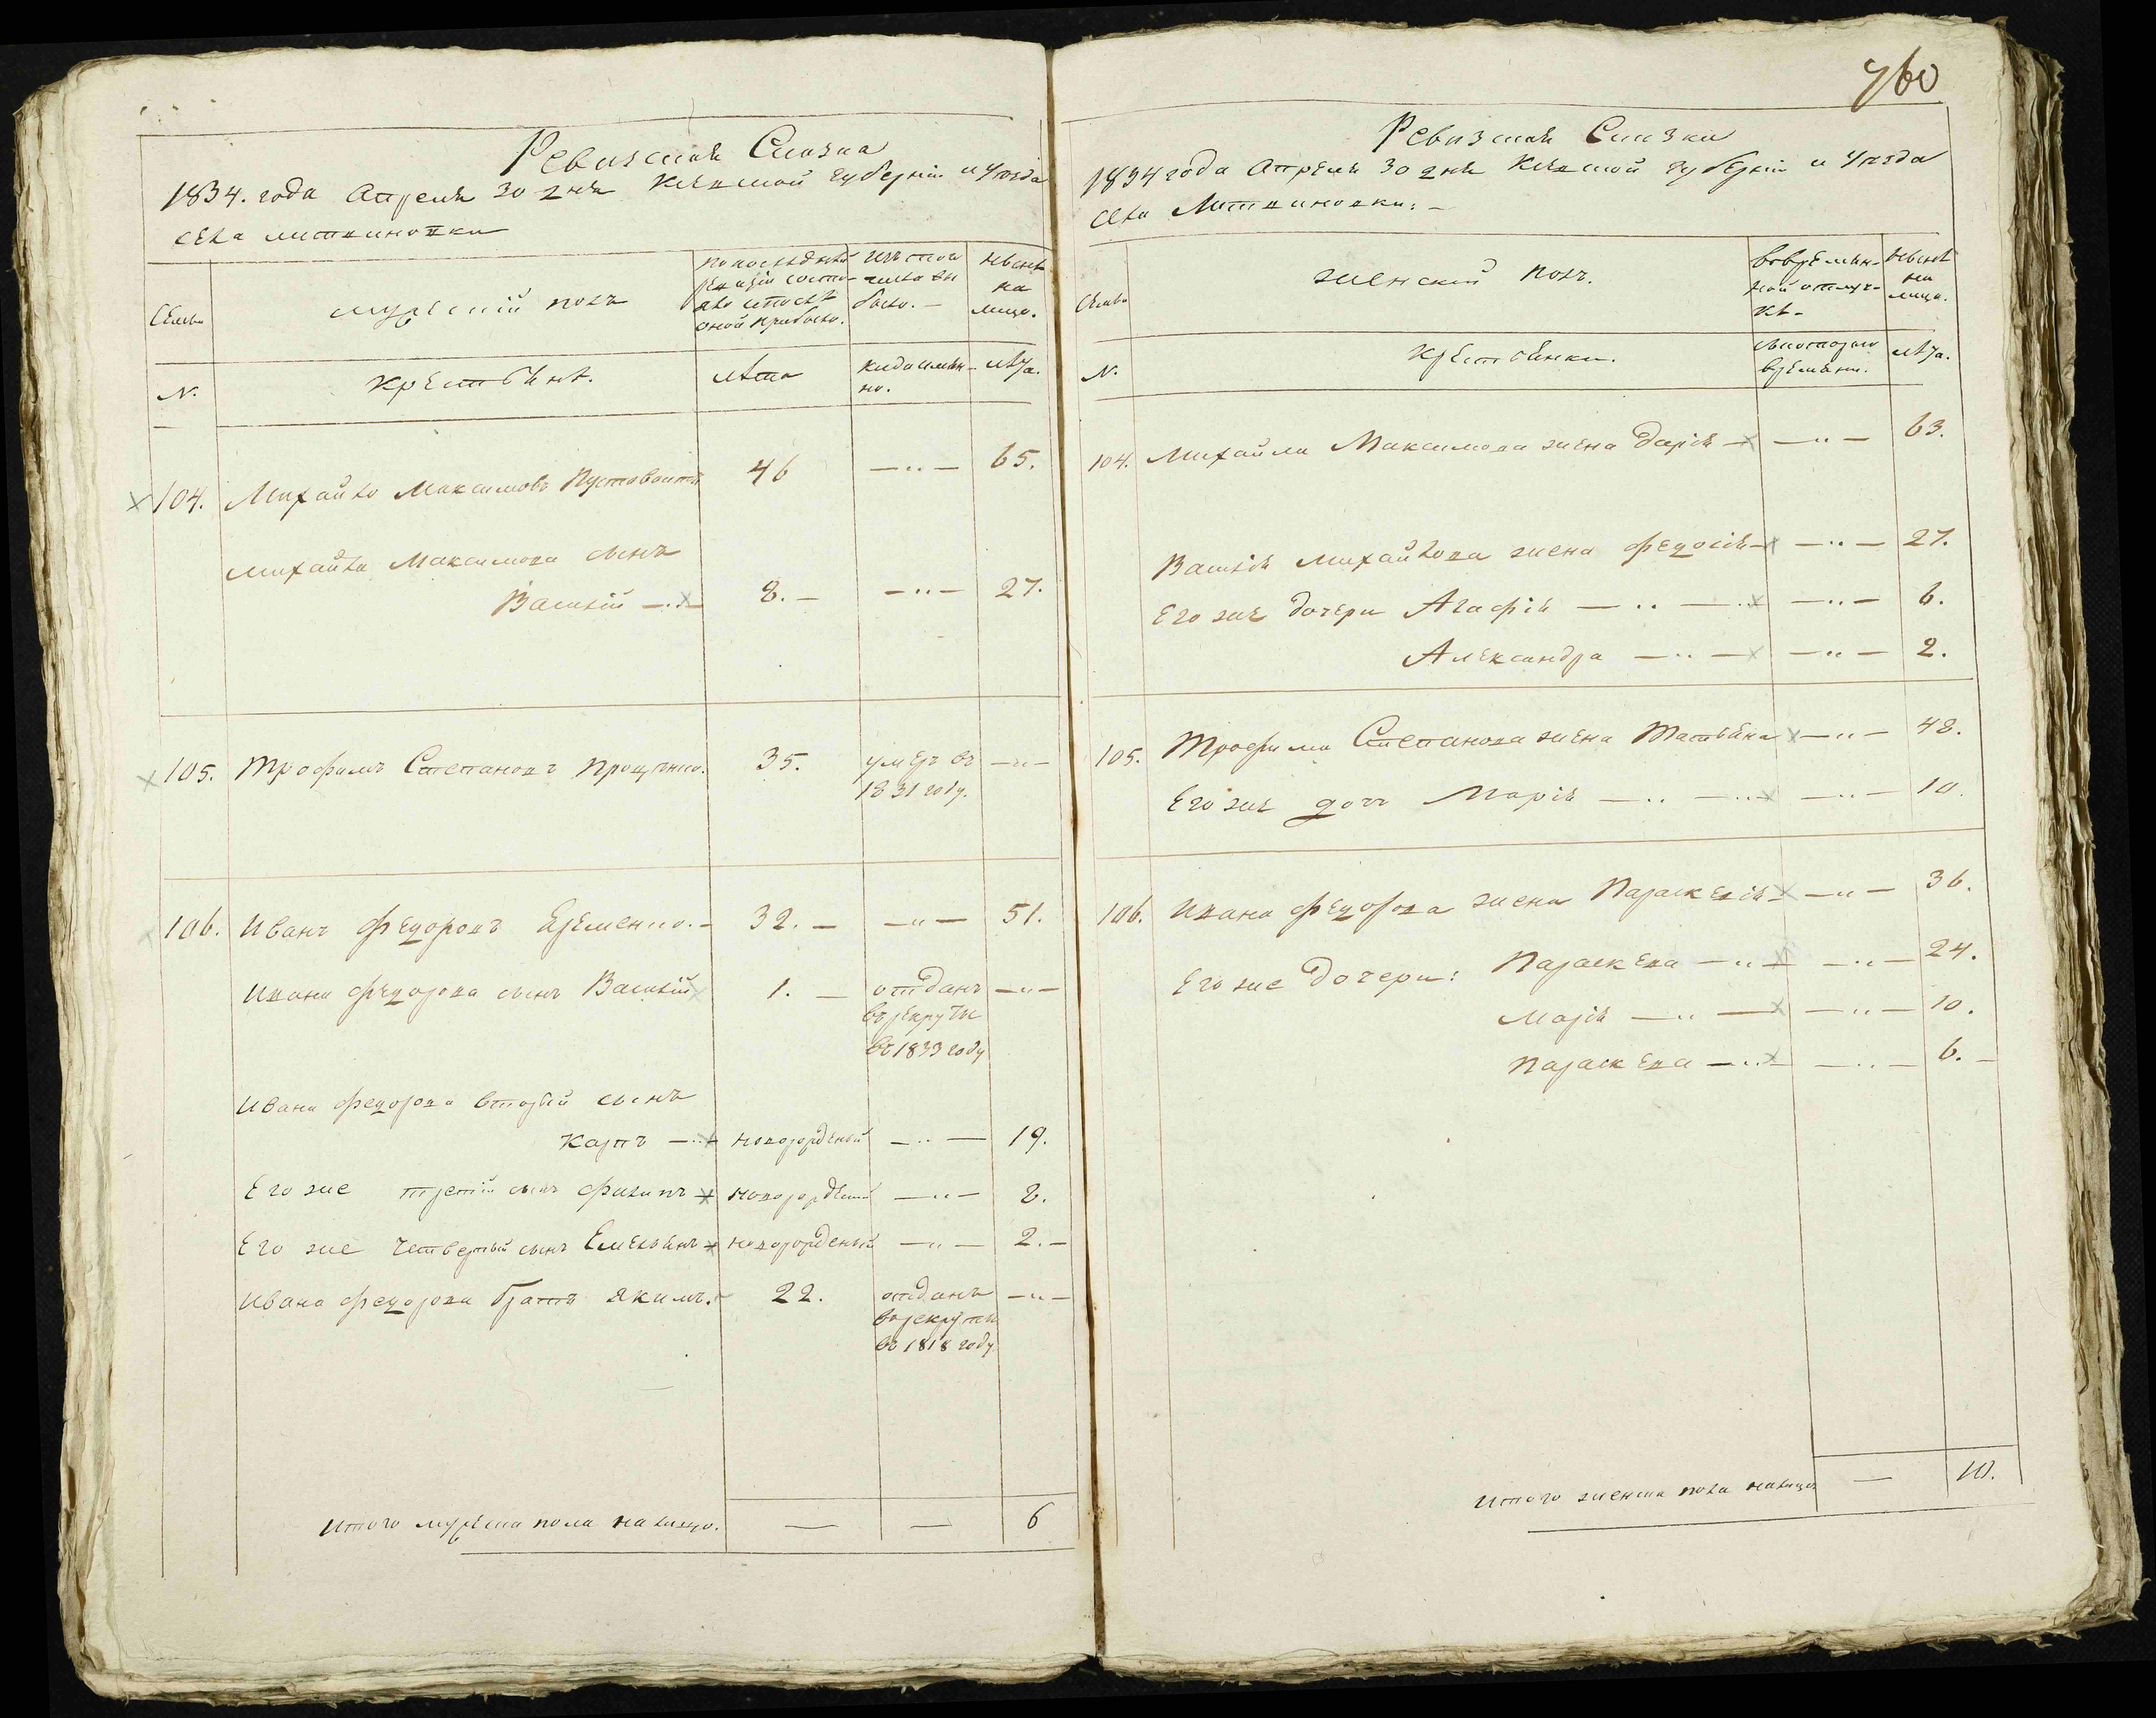 760
Ревизская Сказка
1834. года Апреля 30 дня Кіевской губерніи и уезда
села литвиновки
Семьи
мужескій полъ
по последней
ревизіи состо-
яло и после
оной прибыло.
Изъ того
числа вы
было. —
Ныне
на
лицо.
№.
крестьяне.
лета
когда имян-
но.
лета.
104. Михайло Максимовъ Пустовойтъ 46 — „ — 65.
михайла Максимова сынъ
Василій — „ — 8. — — „ — 27.
105. Трофимъ Степановъ Проценко. 35. умеръ въ — „ —
1831 году.
106. Иванъ Федоровъ Еременко. — 32. — — „ — 51.
Ивана федорова сынъ Василій 1. — отданъ — „ —
въ рекруты
въ 1833 году
Ивана федорова вторый сынъ
Карпъ — „ — новорожденый — „ — 19.
Его же третій сынъ Филипъ новорожденый — „ — 8.
Его же четвертый сынъ Емельянъ новорожденый — „ — 2. —
Ивана федорова братъ Якимъ. 22. отданъ — „ —
въ рекруты
въ 1818 году
Итого мужеска пола налицо. — — 6
Ревизская Сказка
1834 года Апреля 30 дня Кіевской губерніи и уезда
села Литвиновки: —
Семьи
женскій полъ.
во времян-
ной отлуч-
ке —
Ныне
на
лицо.
№.
крестьянки.
съ котораго
времяни.
лета.
104. Михайла Максимова жена Дарія — — „ — 63.
Василія михайлова жена федосія — — „ — 27.
Его же дочери Агафія — „ — — „ — 6.
Александра — „ — — „ — 2.
105. Трофима Степанова жена Татьяна — „ — 48.
Его же дочь Марія — „ — — „ — 10.
106. Ивана федорова жена Параскевія — „ — 36.
Его же дочери: Параскева — „ — — „ — 24.
Марія — „ — — „ — 10.
Параскева — „ — — „ — 6. —
Итого женска пола налицо — 10.